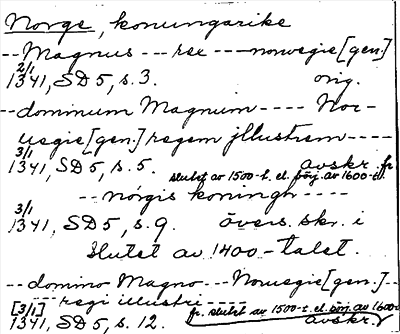 Norge, konungarike
-- Magnus --- rex ---- norwegie [gen.]
2/1
1341, SD 5, s. 3. orig.
-- dominum Magnum ---- Nor-
uegie [gen.] regem jllustrem -----
3/1
1341, SD 5, s. 5. avskr. fr.
slutet av 1500-t. el. börj. av 1600-t.
-- nörgis koningh ----
3/1
1341, SD 5, s. 9. övers. skr. i
slutet av 1400-talet.
-- domino Magno --- Norwegie [gen.] --
---- regi illustri -----
[3/1]
fr. slutet av 1500-t. el. börj. av 1600-t.
1341, SD 5, s. 12. avskr.